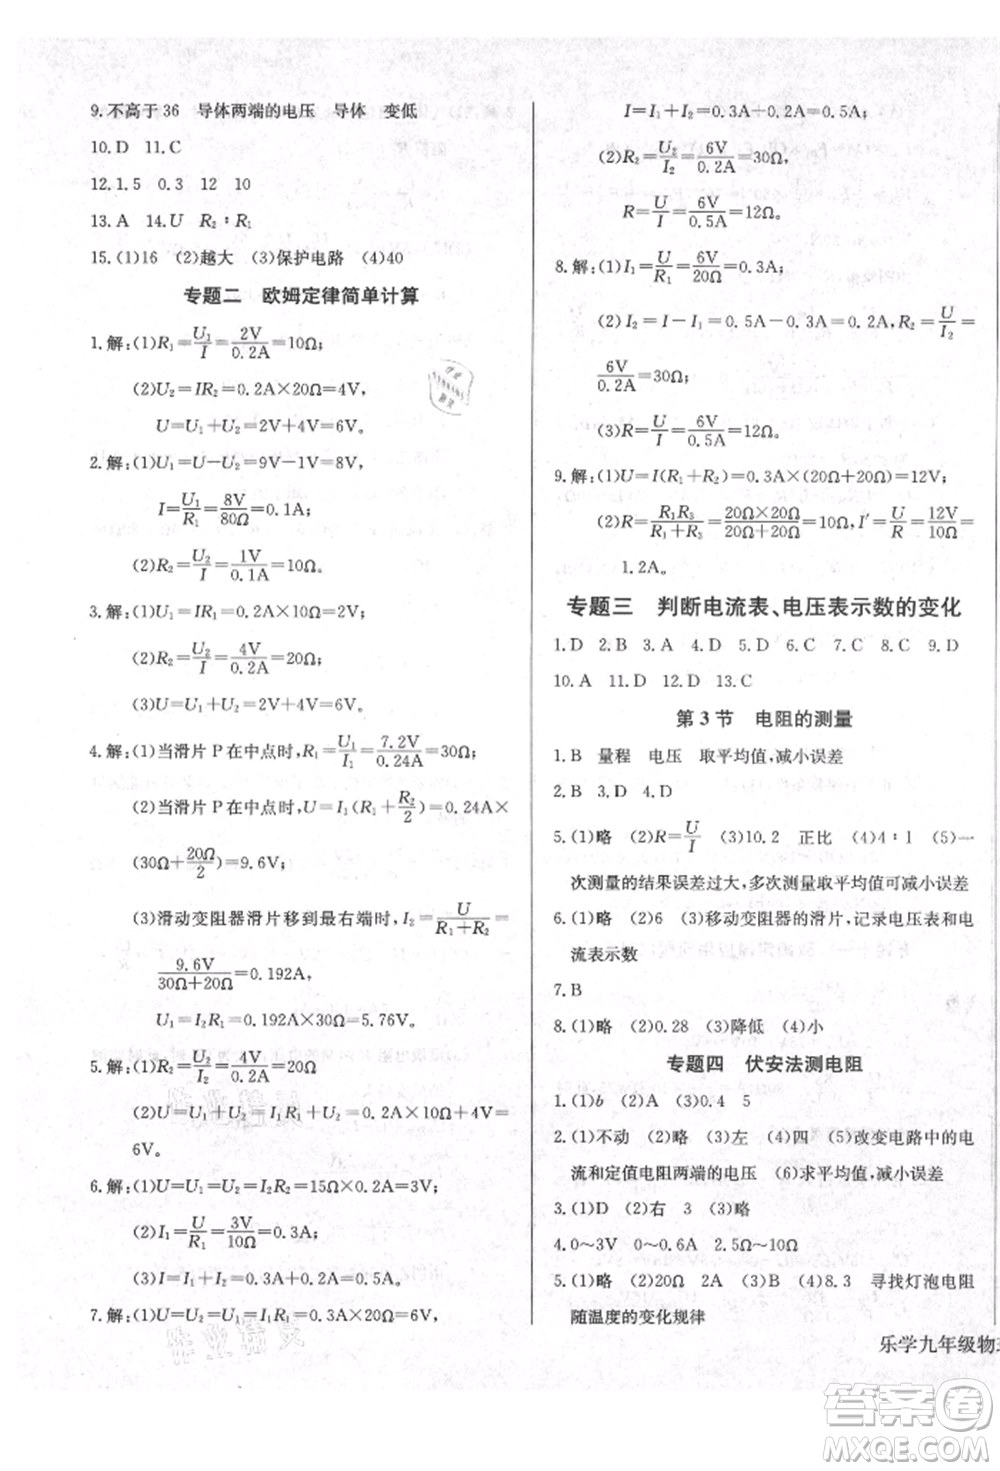 9.不高于36 导体两端的电压 导体 变低
10.D 11.C
12.1.5 0.3 12 10
13.A 14.U R₂∶R₁
15.(1)16 (2)越大 (3)保护电路 (4)40
专题二 欧姆定律简单计算
1.解:(1)R₁=U₁/I=2V/0.2A=10Ω;
(2)U₂=IR₂=0.2A×20Ω=4V,
U=U₁+U₂=2V+4V=6V。
2.解:(1)U₁=U-U₂=9V-1V=8V,
I=U₁/R₁=8V/80Ω=0.1A;
(2)R₂=U₂/I=1V/0.1A=10Ω。
3.解:(1)U₁=IR₁=0.2A×10Ω=2V;
(2)R₂=U₂/I=4V/0.2A=20Ω;
(3)U=U₁+U₂=2V+4V=6V。
4.解:(1)当滑片P在中点时,R₁=U₁/I₁=7.2V/0.24A=30Ω;
(2)当滑片P在中点时,U=I₁(R₁+R₂/2)=0.24A×
(30Ω+20Ω/2)=9.6V;
(3)滑动变阻器滑片移到最右端时,I₂=U/(R₁+R₂)=
9.6V/(30Ω+20Ω)=0.192A,
U₁=I₂R₁=0.192A×30Ω=5.76V。
5.解:(1)R₂=U₂/I₂=4V/0.2A=20Ω;
(2)U=U₁+U₂=I₁R₁+U₂=0.2A×10Ω+4V=
6V。
6.解:(1)U=U₂=I₂R₂=15Ω×0.2A=3V;
(2)I₁=U/R₁=3V/10Ω=0.3A;
(3)I=I₁+I₂=0.3A+0.2A=0.5A。
7.解:(1)U=U₁=U₂=I₁R₁=0.3A×20Ω=6V,
I=I₁+I₂=0.3A+0.2A=0.5A;
(2)R₂=U₂/I₂=6V/0.2A=30Ω,
R=U/I=6V/0.5A=12Ω。
8.解:(1)I₁=U/R₁=6V/20Ω=0.3A;
(2)I₂=I-I₁=0.5A-0.3A=0.2A,R₂=U/I₂=
6V/0.2A=30Ω;
(3)R=U/I=6V/0.5A=12Ω。
9.解:(1)U=I(R₁+R₂)=0.3A×(20Ω+20Ω)=12V;
(2)R=R₁R₃/(R₁+R₃)=20Ω×20Ω/(20Ω+20Ω)=10Ω,I′=U/R=12V/10Ω=
1.2A。
专题三 判断电流表、电压表示数的变化
1.D 2.B 3.A 4.D 5.D 6.C 7.C 8.C 9.D
10.A 11.D 12.D 13.C
第3节 电阻的测量
1.B 量程 电压 取平均值,减小误差
2.B 3.D 4.D
5.(1)略 (2)R=U/I (3)10.2 正比 (4)4∶1 (5)一
次测量的结果误差过大,多次测量取平均值可减小误差
6.(1)略 (2)6 (3)移动变阻器的滑片,记录电压表和电
流表示数
7.B
8.(1)略 (2)0.28 (3)降低 (4)小
专题四 伏安法测电阻
1.(1)b (2)A (3)0.4 5
2.(1)不动 (2)略 (3)左 (4)四 (5)改变电路中的电
流和定值电阻两端的电压 (6)求平均值,减小误差
3.(1)D (2)右 3 (3)略
4.0～3V 0～0.6A 2.5Ω～10Ω
5.(1)略 (2)20Ω 2A (3)B (4)8.3 寻找灯泡电阻
随温度的变化规律
乐学九年级物
答案圈
MXQE.COM
作业精灵